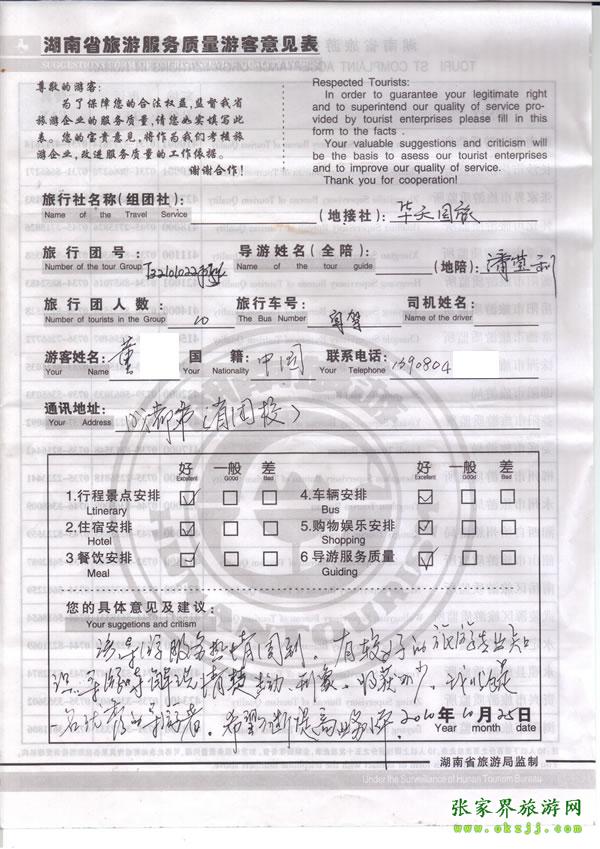 湖南省旅游服务质量游客意见表
尊敬的游客:
为了保障您的合法权益,监督我省
旅游企业的服务质量,请您如实填写此
表。您的宝贵意见,将作为我们考核旅
游企业,改进服务质量的工作依据。
谢谢合作!
Respected Tourists:
In order to guarantee your legitimate right
and to superintend our quality of service pro-
vided by tourist enterprises please fill in this
form to the facts .
Your valuable suggestions and criticism will
be the basis to asess our tourist enterprises
and to improve our quality of service.
Thank you for cooperation!
旅行社名称(组团社): (地接社): 华天国旅
Name of the Travel Service
旅行团号: 导游姓名(全陪): (地陪):
Number of the tour Group Name of the tour guide
旅行团人数: 10 旅行车号: 司机姓名:
Number of tourists in the Group The Bus Number Name of the driver
游客姓名: 董 国籍: 中国 联系电话: 1390804
Your Name Your Nationality Your Telephone
通讯地址: 成都市
Your Address
好 一般 差 好 一般 差
Excellent Good Bad Excellent Good Bad
1.行程景点安排 4.车辆安排
Ltinerary Bus
2.住宿安排 5.购物娱乐安排
Hotel Shopping
3 餐饮安排 6 导游服务质量
Meal Guiding
您的具体意见及建议:
Your suggetions and critism
该导游服务热情周到,有较好的旅游专业知
识,导游讲解清楚生动、形象,收获不少,
一名优秀的导游者。希望不断提高业务水平。 2010年10月25日
Year month date
湖南省旅游局监制
Under the Surveillance of Hunan Tourism Bureau
张家界旅游网
www.okzjj.com